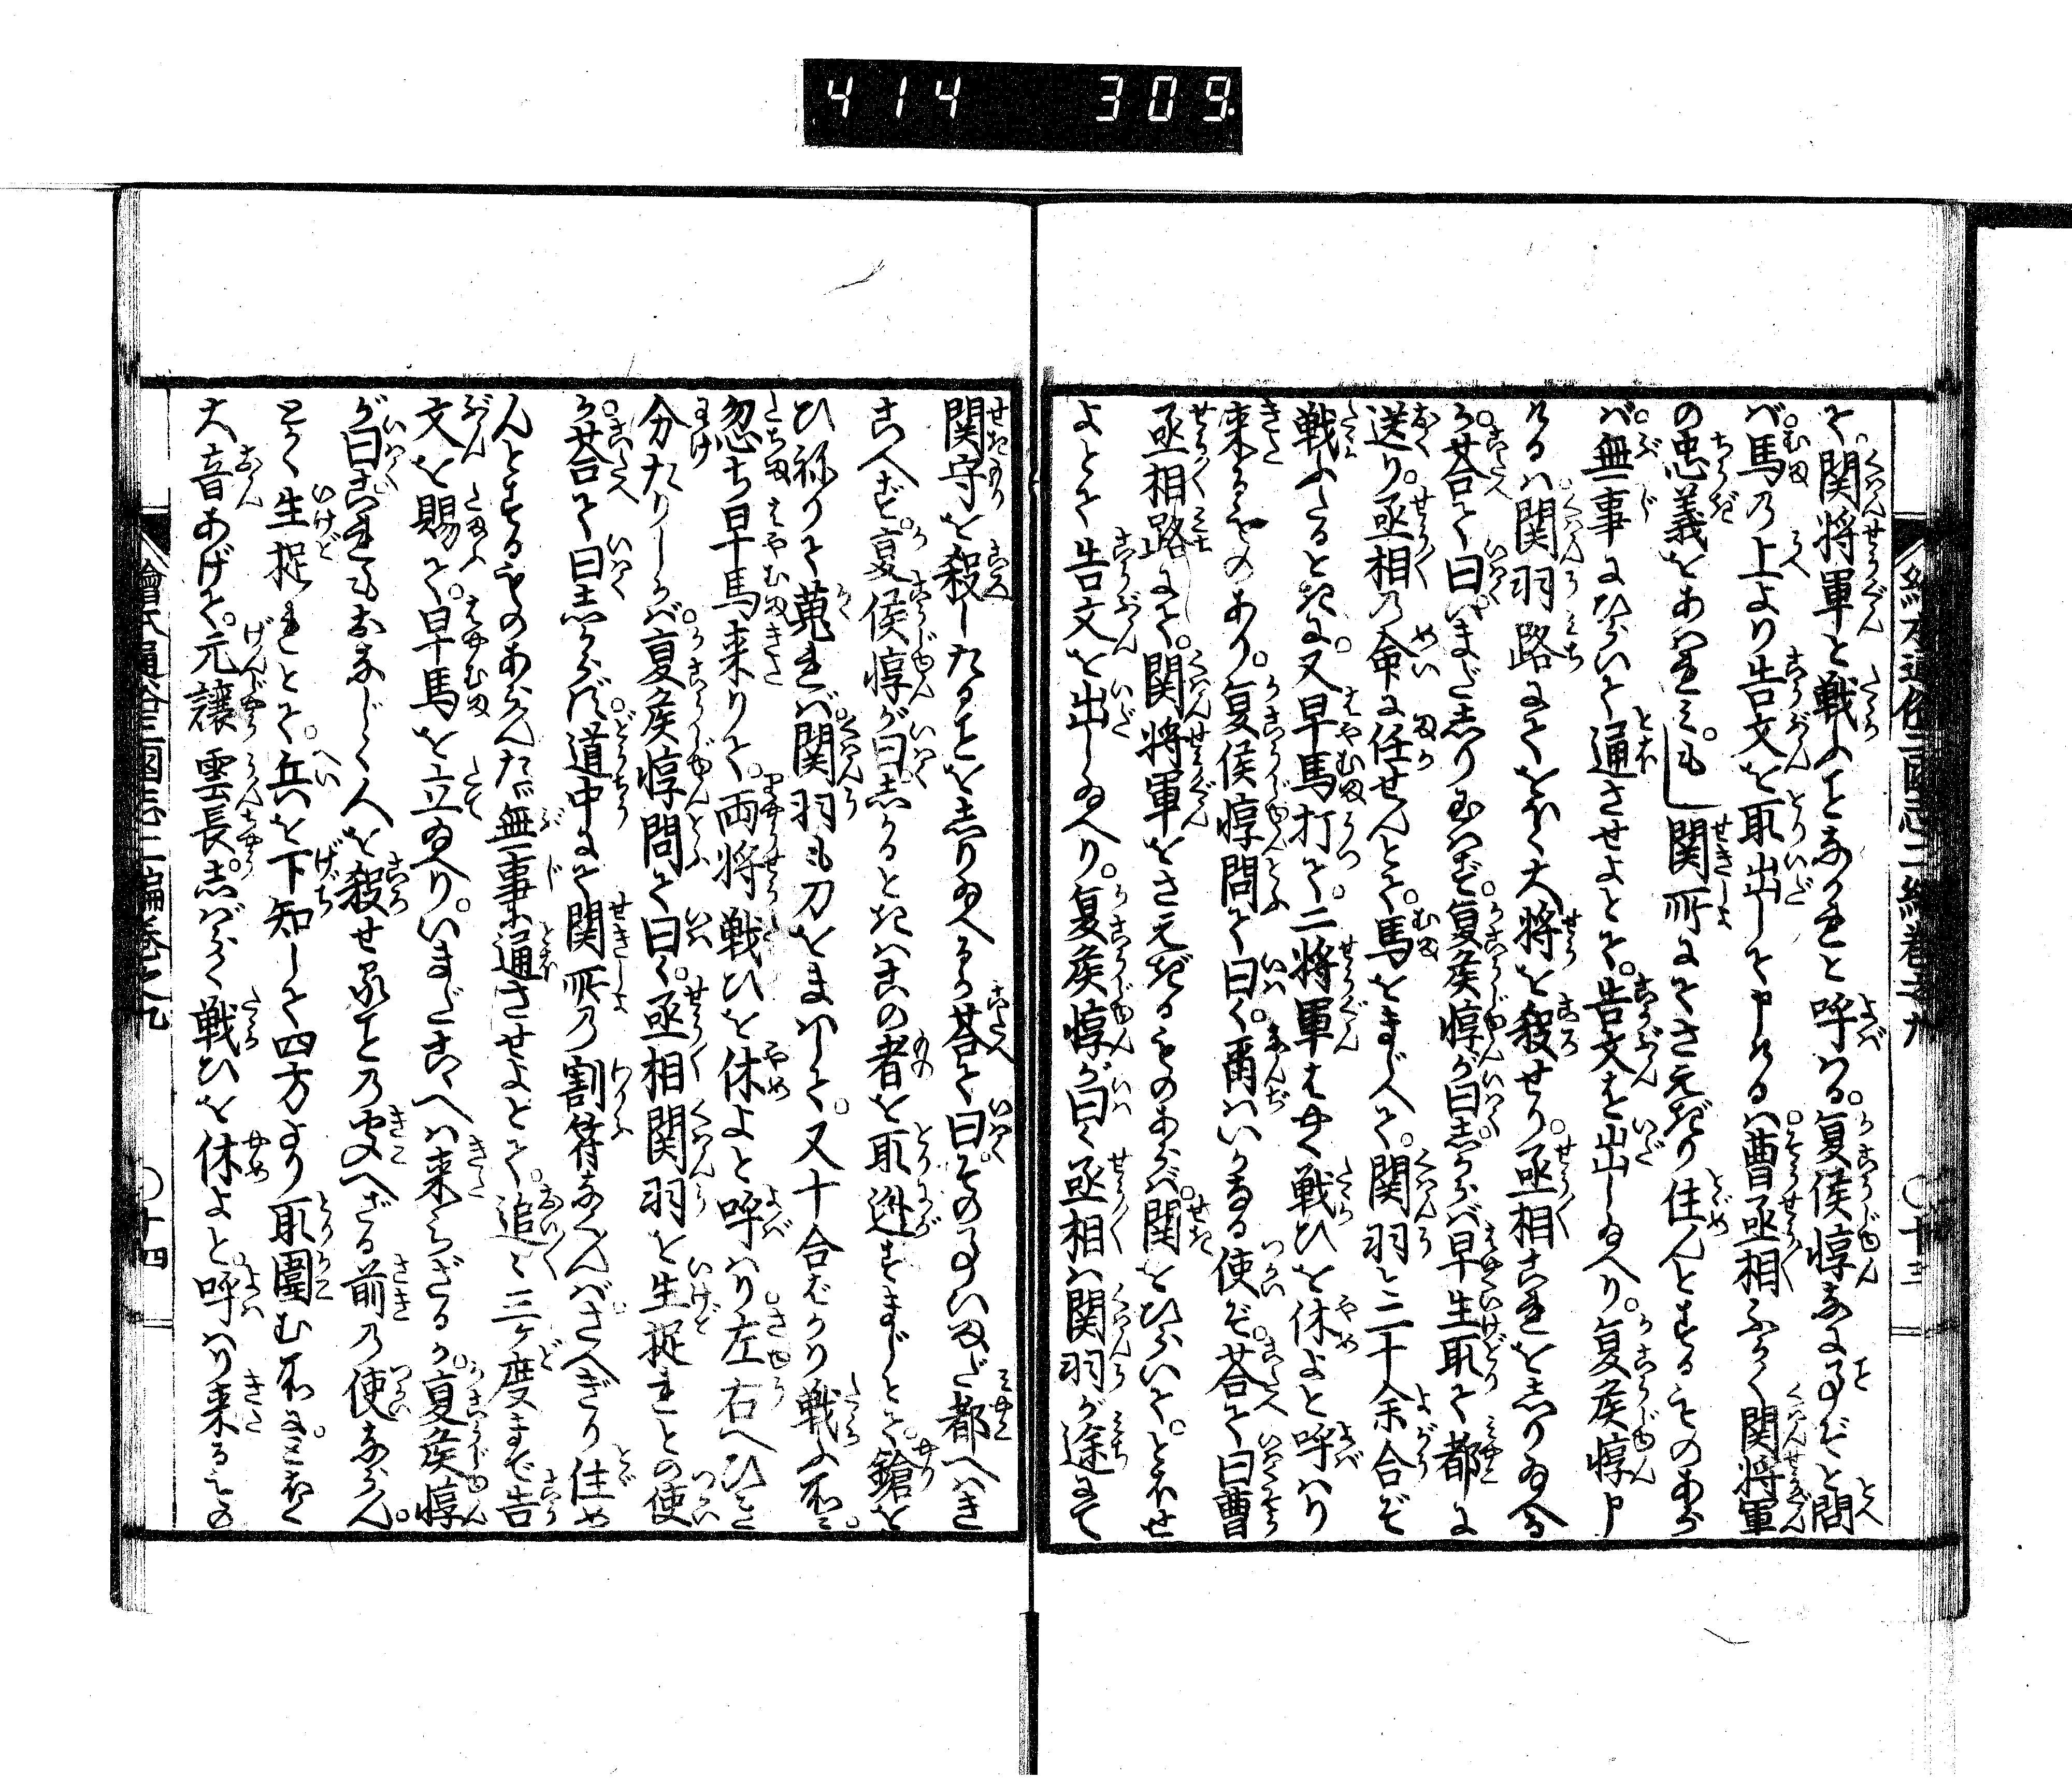 414 309
絵本通俗三国志二編巻之九 〇十三
て。関将軍と戦ふことなかれと呼はる。夏侯惇なに事ぞと問
ば。馬の上より告文を取出して申けるは。曹丞相ふかく関将軍
の忠義をあはれみ。もし関所にてさえぎり住んとするものあら
ば。無事にひらいて通させよとて。告文を出し給へり。夏侯惇申
けるは。関羽路にておほく大将を殺せり。丞相これを知り給ふ
か。答て曰いまだ知り玉はず。夏侯惇が曰。しからば早生取て都に
送り。丞相の命に任せんとて。馬をまじへて。関羽と二十余合ぞ
戦ふたるときに。又早馬打て。二将軍はやく戦ひを休よと呼はり
来るものあり。夏侯惇問て曰く。爾はいかなる使ぞ。答て曰曹
丞相路にて。関将軍をさえぎるものあらば。関をひらいて。とほせ
よとて告文を出し給へり。夏侯惇が曰く丞相は関羽が途にて
関守を殺したることを知り給へるか答て曰。その事いまだ都へき
こへず。夏侯惇が曰。しかるときはこの者を取逃すまじとて。鎗を
ひねりて蒐れば。関羽も刀をまはして。又十合ばかり戦ふ所に。
忽ち早馬来りて。両将戦ひを休よと呼はり。左右へひき
分たりしかば。夏侯惇問て曰く。丞相関羽を生捉れとの使
か。答て曰しからず。道中にて関所の割符なくんば。さへぎり住め
んとするものあらんただ無事に通させよとて。追々三ヶ度まで告
文を賜て。早馬を立給へり。いまだこゝへは来らざるか。夏侯惇
が曰これもおなじく人を殺せることの聞へざる前の使ならん。
とく生捉れとて。兵を下知して四方より取囲む所に。とほく
大音あげて。元譲雲長。しばらく戦ひを休よと。呼はり来るもの
絵本通俗三国志二編巻之九 〇十四